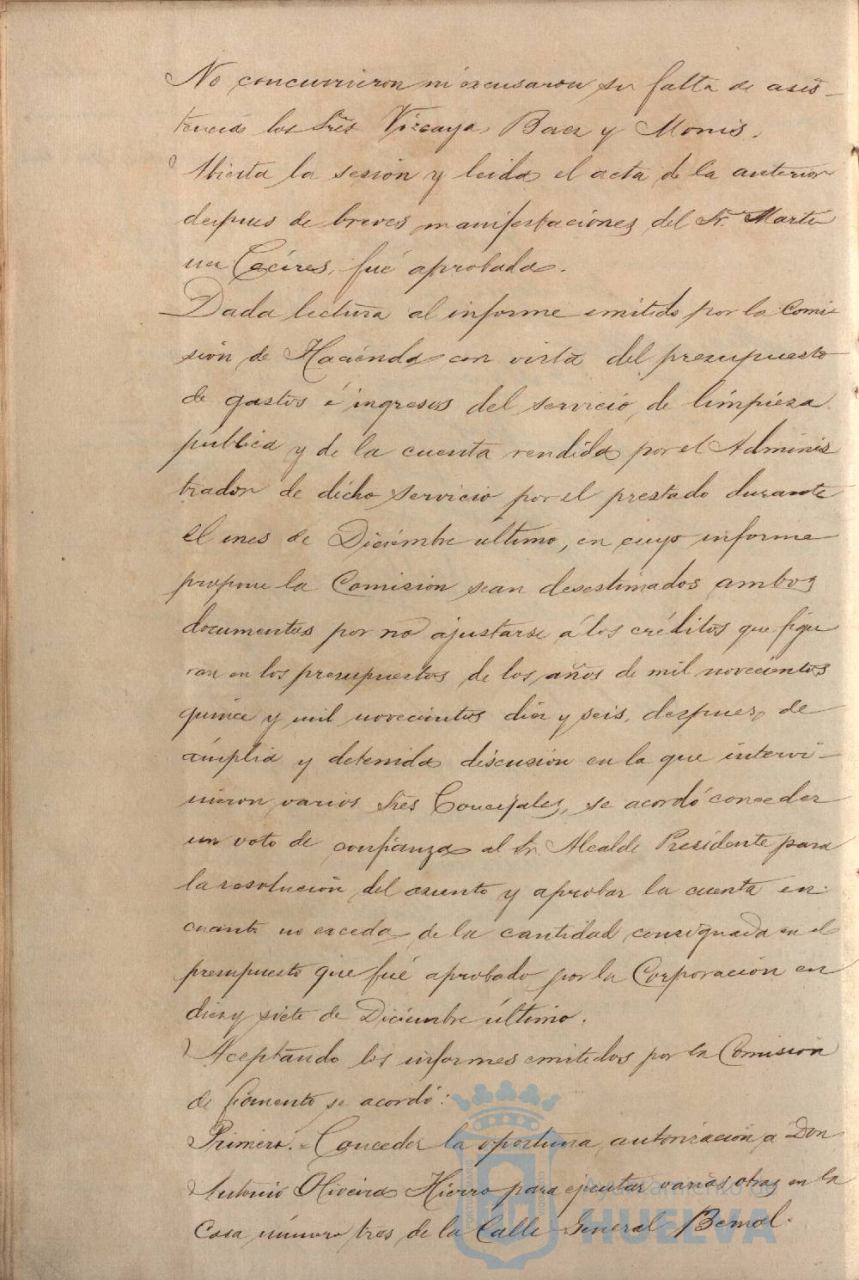 No concurrieron ni excusaron su falta de asis-
tencia los Sres Vizcaya, Baez y Monis.
Abierta la sesión y leida el acta de la anterior
despues de breves manifestaciones del Sr. Marti
nez Cáceres, fué aprobada.
Dada lectura al informe emitido por la Comi-
sión de Hacienda con vista del presupuesto
de gastos é ingresos del servicio de limpieza
publica y de la cuenta rendida por el Adminis
trador de dicho servicio por el prestado durante
el mes de Diciembre ultimo, en cuyo informe
propone la Comisión sean desestimados ambos
documentos por no ajustarse á los créditos que figu
ran en los presupuestos de los años de mil novecientos
quince y mil novecientos diez y seis, despues de
ámplia y detenida discusión en la que intervi-
nieron varios Sres Concejales, se acordó conceder
un voto de confianza al Sr. Alcalde Presidente para
la resolución del asunto y aprobar la cuenta en
cuanto no exceda de la cantidad consignada en el
presupuesto que fué aprobado por la Corporación en
diez y siete de Diciembre último.
Aceptando los informes emitidos por la Comisión
de fomento se acordó:
Primero.- Conceder la oportuna autorización á Don
Antonio Oliveira Hierro para ejecutar varias obras en la
Casa número tres de la Calle General Bernal.
Ayuntamiento de
HUELVA